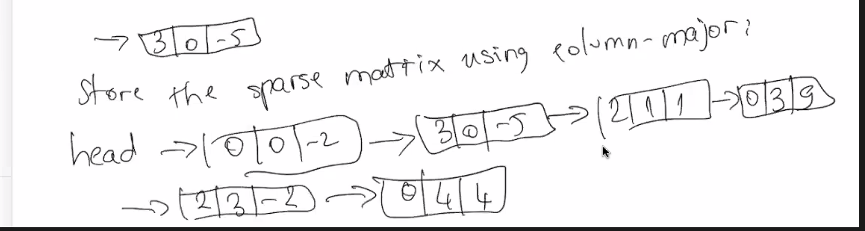 → 3|0|-5
Store the sparse matrix using column-major:
head → 0|0|-2 → 3|0|-5 → 2|1|1 → 0|3|9
→ 2|3|-2 → 0|4|4